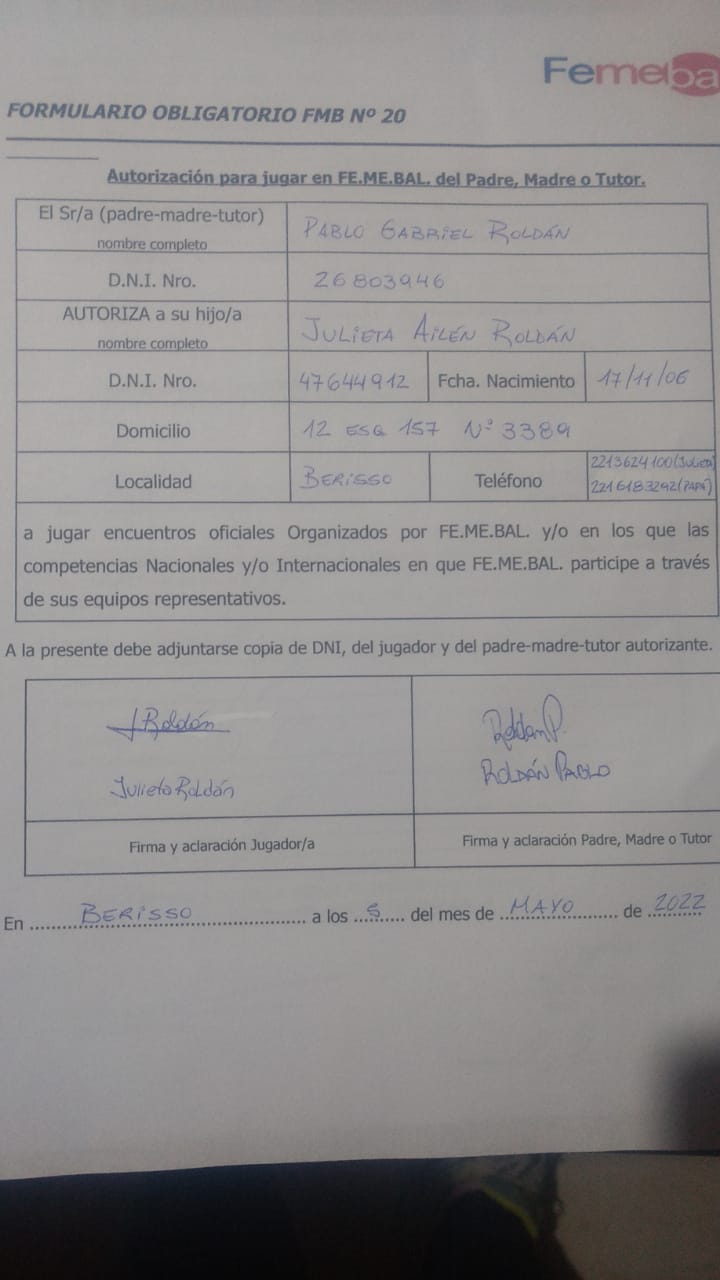 Femeba
FORMULARIO OBLIGATORIO FMB Nº 20
Autorización para jugar en FE.ME.BAL. del Padre, Madre o Tutor.
El Sr/a (padre-madre-tutor) PABLO GABRIEL ROLDÁN
nombre completo
D.N.I. Nro. 26803946
AUTORIZA a su hijo/a JULIETA AILÉN ROLDÁN
nombre completo
D.N.I. Nro. 47644912 Fcha. Nacimiento 17/11/06
Domicilio 12 ESQ 157 Nº 3389
Localidad BERISSO Teléfono 2213624100 (JULIETA)
2216183292 (PAPÁ)
a jugar encuentros oficiales Organizados por FE.ME.BAL. y/o en los que las
competencias Nacionales y/o Internacionales en que FE.ME.BAL. participe a través
de sus equipos representativos.
A la presente debe adjuntarse copia de DNI, del jugador y del padre-madre-tutor autorizante.
JRoldán Roldan P.
Julieta Roldán ROLDÁN PABLO
Firma y aclaración Jugador/a Firma y aclaración Padre, Madre o Tutor
En BERISSO a los 5 del mes de MAYO de 2022